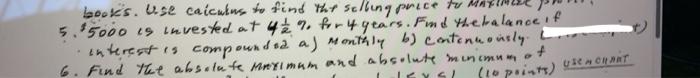 books. Use calculus to find the selling price to maximize
5. $5000 is invested at 4½ % for 4 years. Find the balance if
interest is compounded a) monthly b) continuously.
6. Find the absolute maximum and absolute minimum of
(10 points) use a chart